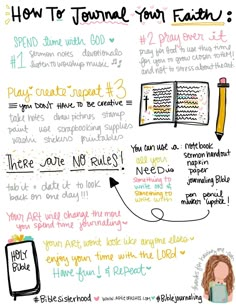 How To Journal Your Faith:
SPEND time with GOD
#1 sermon notes devotionals
listen to worship music
#2 pray over it
pray for God to use this time
for you to grow closer to Him
and not to stress about the art.
Play·create·repeat #3
you DON'T HAVE TO BE creative
take notes draw pictures stamp
paint use scrapbooking supplies
washi stickers printables
There are NO RULES!
tab it + date it to look
back on one day!!!
You can use a:
notebook
sermon handout
napkin
paper
journaling Bible
pen pencil
makers lipstick!
all you
NEED is
something to
write on &
something to
write with
Your ART will change the more
you spend time journaling
Your ART won't look like anyone elses
enjoy your time with the LORD
Have fun! & Repeat
HOLY
Bible
#Biblesisterhood
#Biblejournaling